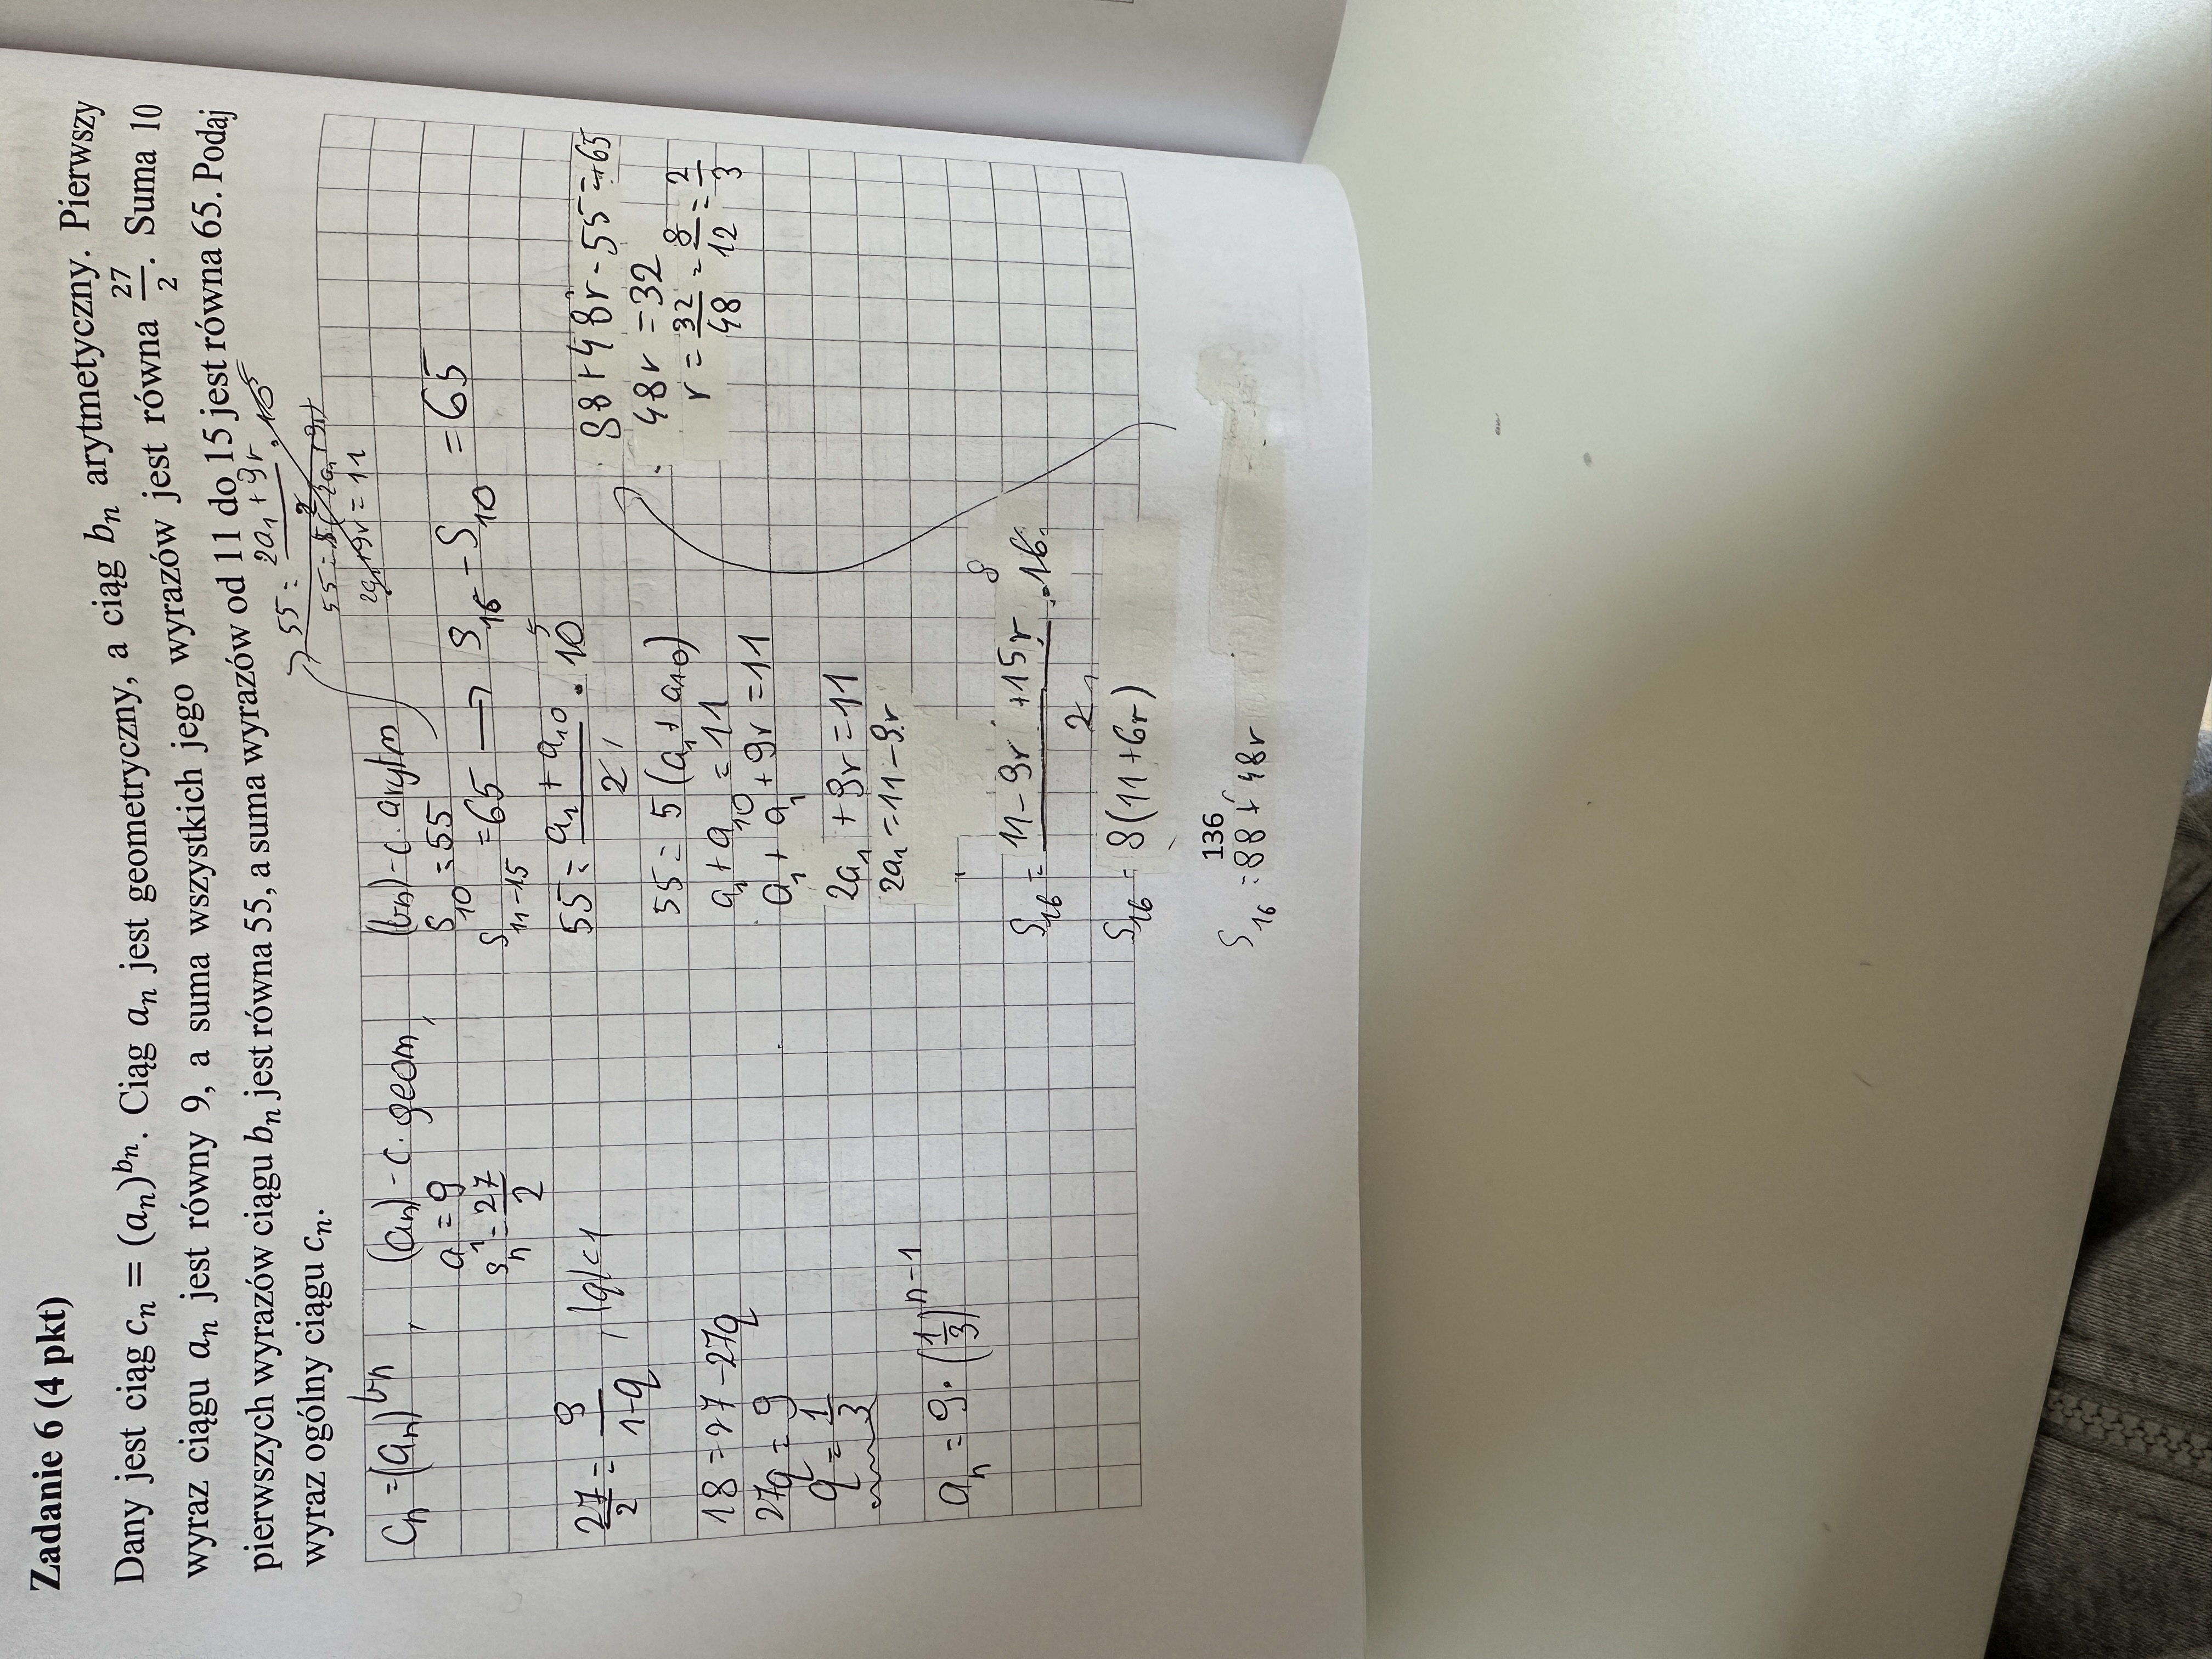 Zadanie 6 (4 pkt)
Dany jest ciąg cₙ = (aₙ)^bₙ. Ciąg aₙ jest geometryczny, a ciąg bₙ arytmetyczny. Pierwszy
wyraz ciągu aₙ jest równy 9, a suma wszystkich jego wyrazów jest równa 27/2. Suma 10
pierwszych wyrazów ciągu bₙ jest równa 55, a suma wyrazów od 11 do 15 jest równa 65. Podaj
wyraz ogólny ciągu cₙ.
cₙ = (aₙ)^bn , (aₙ) - c. geom,
a₁ = 9
Sₙ = 27/2
27/2 = 9/(1-q) , |q|<1
18 = 27 - 27q
27q = 9
q = 1/3
aₙ = 9 · (1/3)^n-1
(bn) - c. arytm
S₁₀ = 55
S₁₁₋₁₅ = 65 → S₁₆ - S₁₀ = 65
55 = (a₁ + a₁₀)/2 · 10 5
55 = 5 (a₁ + a₁₀)
a₁ + a₁₀ = 11
a₁ + a₁ + 9r = 11
2a₁ + 9r = 11
2a₁ = 11 - 9r
S₁₆ = (11 - 9r + 15r)/2 · 16 8
S₁₆ = 8 (11 + 6r)
S₁₆ = 88 + 48r
55 = (2a₁ + 9r)/2 · 10
55 = 5 (2a₁ + 9r)
2a₁ + 9r = 11
88 + 48r - 55 = +65
48r = 32
r = 32/48 = 8/12 = 2/3
136